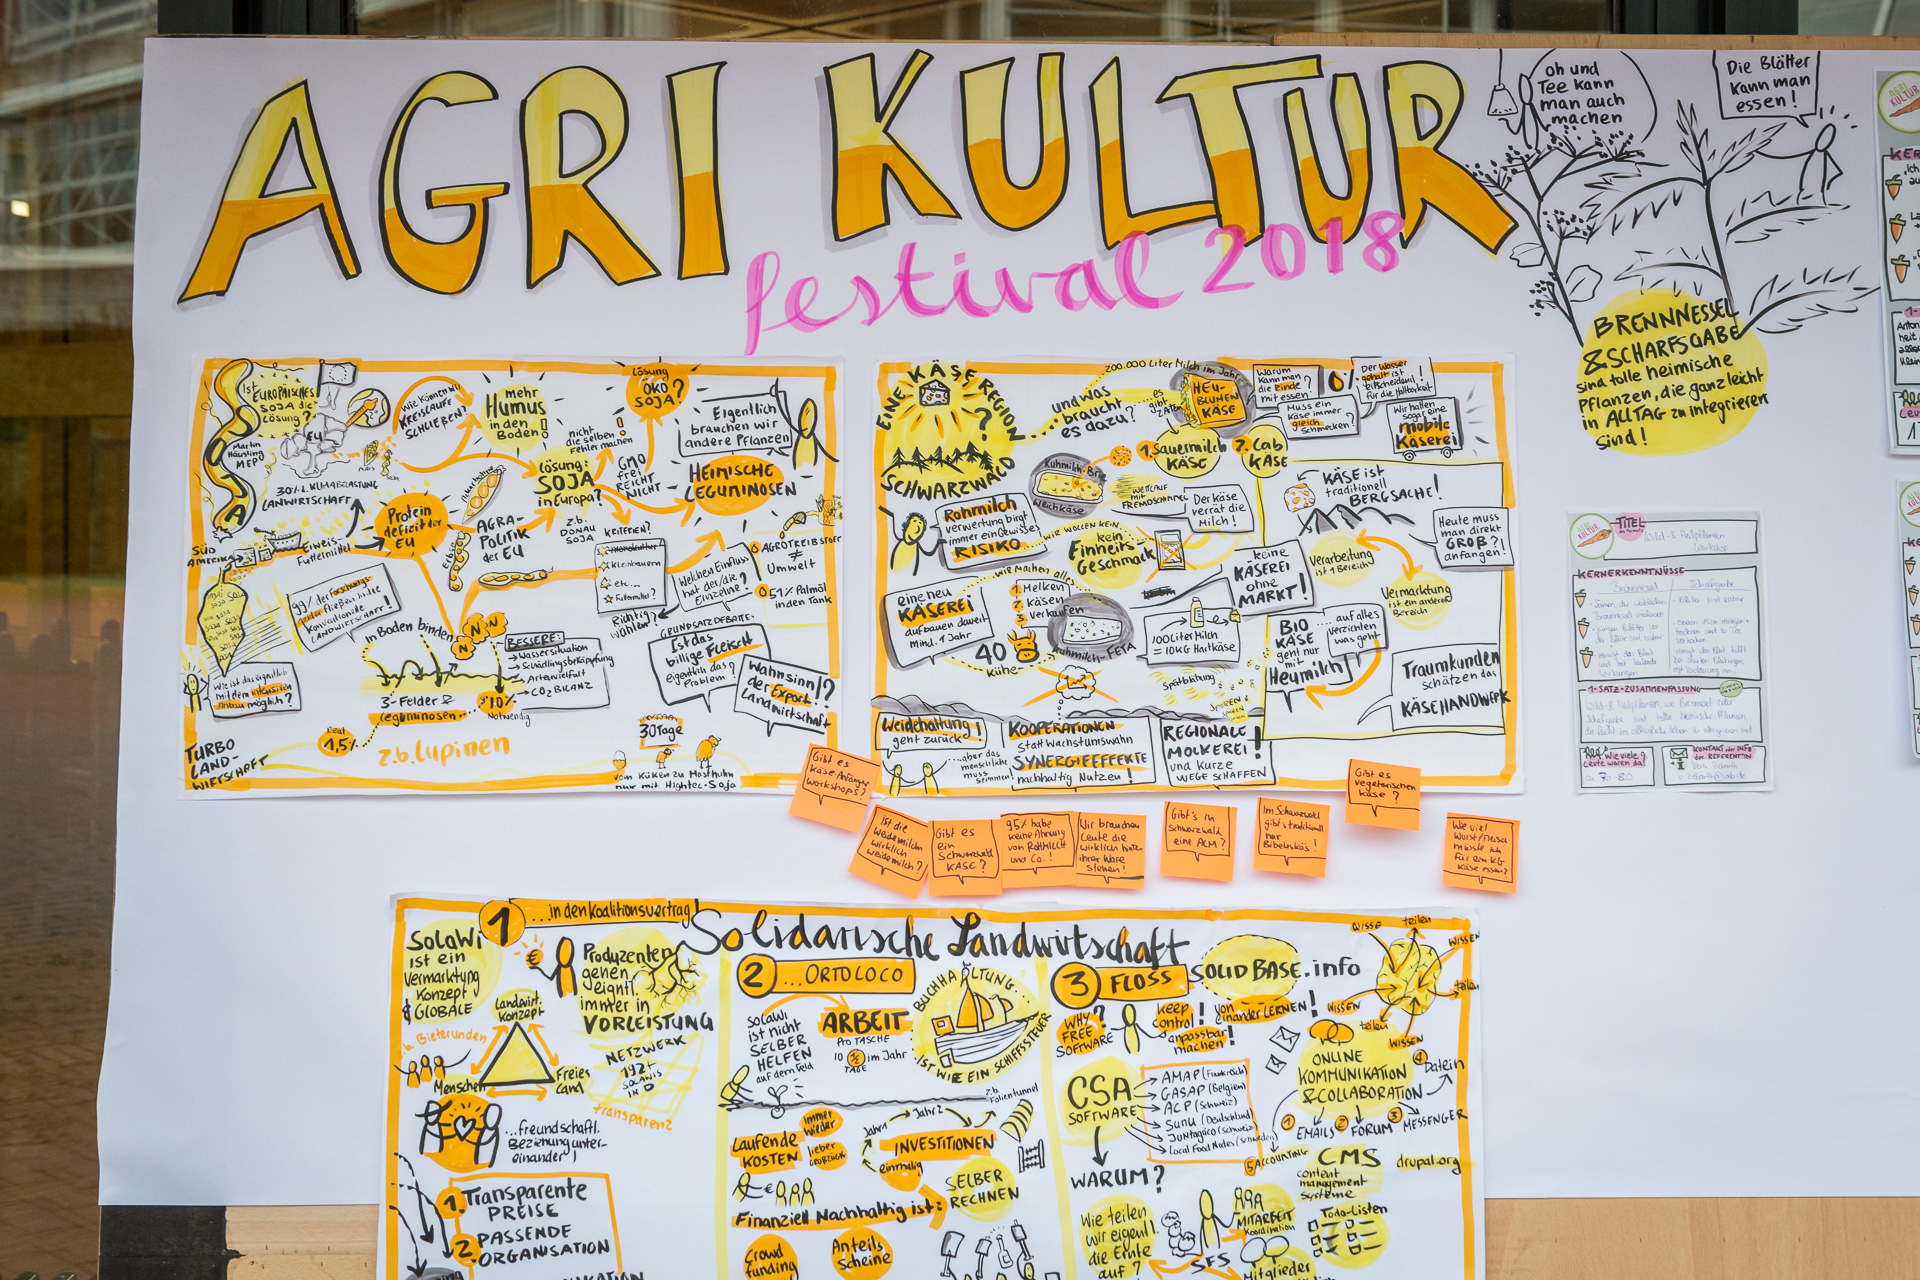 AGRI KULTUR
festival 2018
oh und
Tee kann
man auch
machen
Die Blätter
kann man
essen!
BRENNNESSEL
& SCHARFSGABE
sind tolle heimische
Pflanzen, die ganz leicht
in ALLTAG zu integrieren
sind!
Ist EUROPÄISCHES
SOJA die
Lösung?
Martin
Häusling
MEP
EU
30% d. KLIMABELASTUNG
LANWIRTSCHAFT
Wie können wir
KREISLÄUFE
SCHLIEßEN?
mehr
Humus
in den
Boden!
nicht
die selben
Fehler machen
Lösung
ÖKO
SOJA?
Eigentlich
brauchen wir
andere Pflanzen
Lösung:
SOJA
in Europa?
z.B.
DONAU
SOJA
GMO
frei
REICHT
NICHT
HEIMISCHE
LEGUMINOSEN
Protein
defizit der
EU
Ackerbohne
Erbse
AGRA-
POLITIK
der EU
SÜD
AMERIKA
Eiweis-
Futtermittel
SOJA
99% der Forschungs-
gelder fließen in die
konventionelle
LANDWIRTSCHAFT!
KRITERIEN?
Monokultur
Kleinbauern
etc...
Futtermittel?
Richtig
wählen?
Welchen Einfluss
hat der/die
Einzelne?
AGROTREIBSTOFF
≠
Umwelt
51% Palmöl
in den Tank
in Boden binden
N
N
N
BESSERE:
→ Wassersituation
→ Schädlingsbekämpfung
→ Artenvielfalt
→ CO2 BILANZ
GRUNDSATZDEBATE:
Ist das
billige Fleisch
eigentlich das
Problem?
Wahnsinn!?
der Export
Landwirtschaft
Wie ist das eigentlich
mit dem intensiven
Anbau möglich?
3-Felder &
Leguminosen...
10%
Notwendig
real
1,5%
z.b. Lupinen
TURBO
LAND-
WIRTSCHAFT
30 Tage
vom Küken zu Masthuhn
nur mit Hightec-Soja
EINE KÄSEREGION
SCHWARZWALD
?
und was
braucht
es dazu?
200.000 Liter Milch im Jahr
HEU-
BLUMEN
KÄSE
Warum
kann man
die Rinde
mit essen?
%
Der Wasser
gehalt ist
entscheidend
für die Haltbarkeit
Muss ein
Käse immer
gleich
schmecken?
Wir hatten
sogar eine
mobile
Käserei
1. Sauermilch
KÄSE
2. Lab
KÄSE
Kuhmilch-Brie
Weichkäse
WETTLAUF
mit
FREMDSCHIMMEL
Der käse
verrät die
Milch!
KÄSE ist
traditionell
BERGSACHE!
Heute muss
man direkt
GROß?!
anfangen!
Rohmilch
verwertung birgt
immer ein Gewisses
RISIKO
...WIR WOLLEN KEIN...
kein
Einheits
Geschmack
keine
KÄSEREI
ohne
MARKT!
Verarbeitung
ist 1 Bereich
Vermarktung
ist ein anderer
Bereich
eine neu
KÄSEREI
aufbauen dauert
mind. 1 Jahr
WIR Machen alles
1. Melken
2. Käsen
3. Verkaufen
40
Kühe
Kuhmilch-FETA
100 Liter Milch
= 10 KG Hartkäse
BIO
KÄSE
geht nur
mit
Heumilch
... auf alles
verzichten
was geht
Spätblähung
SPOREN
Traumkunden
schätzen das
KÄSEHANDWERK
Weidehaltung
geht zurück!
...aber das
menschliche
muss
stimmen!
KOOPERATIONEN
statt Wachstumswahn
SYNERGIEEFFEKTE
nachhaltig Nutzen!
REGIONALE
MOLKEREI!
und kurze
WEGE SCHAFFEN
Gibt es
Käse Anfänger
Workshops?
Ist die
Weidemilch
wirklich
Weidemilch?
Gibt es
ein
Schwarzwald
KÄSE?
95% habe
keine Ahnung
von Rohmilch
und Co.!
Wir brauchen
Leute die
wirklich hinter
ihrer Ware
stehen!
Gibt's in
Schwarzwald
eine ALM?
Im Schwarzwald
gibt's traditionell
nur
Bibeleskäs!
Gibt es
vegetarischen
Käse?
Wie viel
Wurst/Fleisch
müsste ich
für ein KG
Käse essen?
AGRI
KULTUR
TITEL
Wild- & Heilpflanzen
Workshop
KERNERKENNTNISSE
Brennnessel
Schafgarbe
1-SATZ-ZUSAMMENFASSUNG
Wie viele
Leute waren da?
ca. 70-80
KONTAKT oder INFO
der REFERENT*IN
Solidarische Landwirtschaft
1
...in den Koalitionsvertrag!
SoLaWi
ist ein
Vermarktung
Konzept
& GLOBALE
Produzenten
gehen
eigntl.
immer in
VORLEISTUNG
Landwirt.
Konzept
z.B. Bieterunden
Menschen
Freies
Land
NETZWERK
192+
SOLAWIS
IN D
transparenz
...freundschaftl.
Beziehung unter-
einander!
1. Transparente
PREISE
2. PASSENDE
ORGANISATION
2
...ORTOLOCO
SOLAWI
ist nicht
SELBER
HELFEN
auf dem Feld
ARBEIT
PRO TASCHE
10 ½ im Jahr
TAGE
BUCHHALTUNG...
...IST WIE EIN SCHIFFSSTEUER
z.B.
Folientunnel
Laufende
KOSTEN
immer
wieder
lieber
GROßZÜGIG
Jahr 1
Jahr 2
INVESTITIONEN
einmalig
SELBER
RECHNEN
Finanziell Nachhaltig ist:
Crowd
funding
Anteils
Scheine
3
FLOSS
SOLIDBASE.info
WHY
FREE
SOFTWARE?
keep
control!
anpassbar
machen!
von
einander LERNEN!
WISSEN
teilen
WISSEN
teilen
WISSEN
teilen
WISSEN
CSA
SOFTWARE
AMAP (Frankreich)
GASAP (Belgien)
ACP (Schweiz)
Sunu (Deutschland)
Juntagrico (Schweiz)
Local Food Nodes (Schweden)
ONLINE
KOMMUNIKATION
& COLLABORATION
4 Datein
1 EMAILS
2 FORUM
3 MESSENGER
5 ACCOUNTING
CMS
content
management
systeme
drupal.org
WARUM?
Wie teilen
wir eigentl.
die Ernte
auf?
MITARBEIT
Koordination
SFS
Mitglieder
Todo-Listen